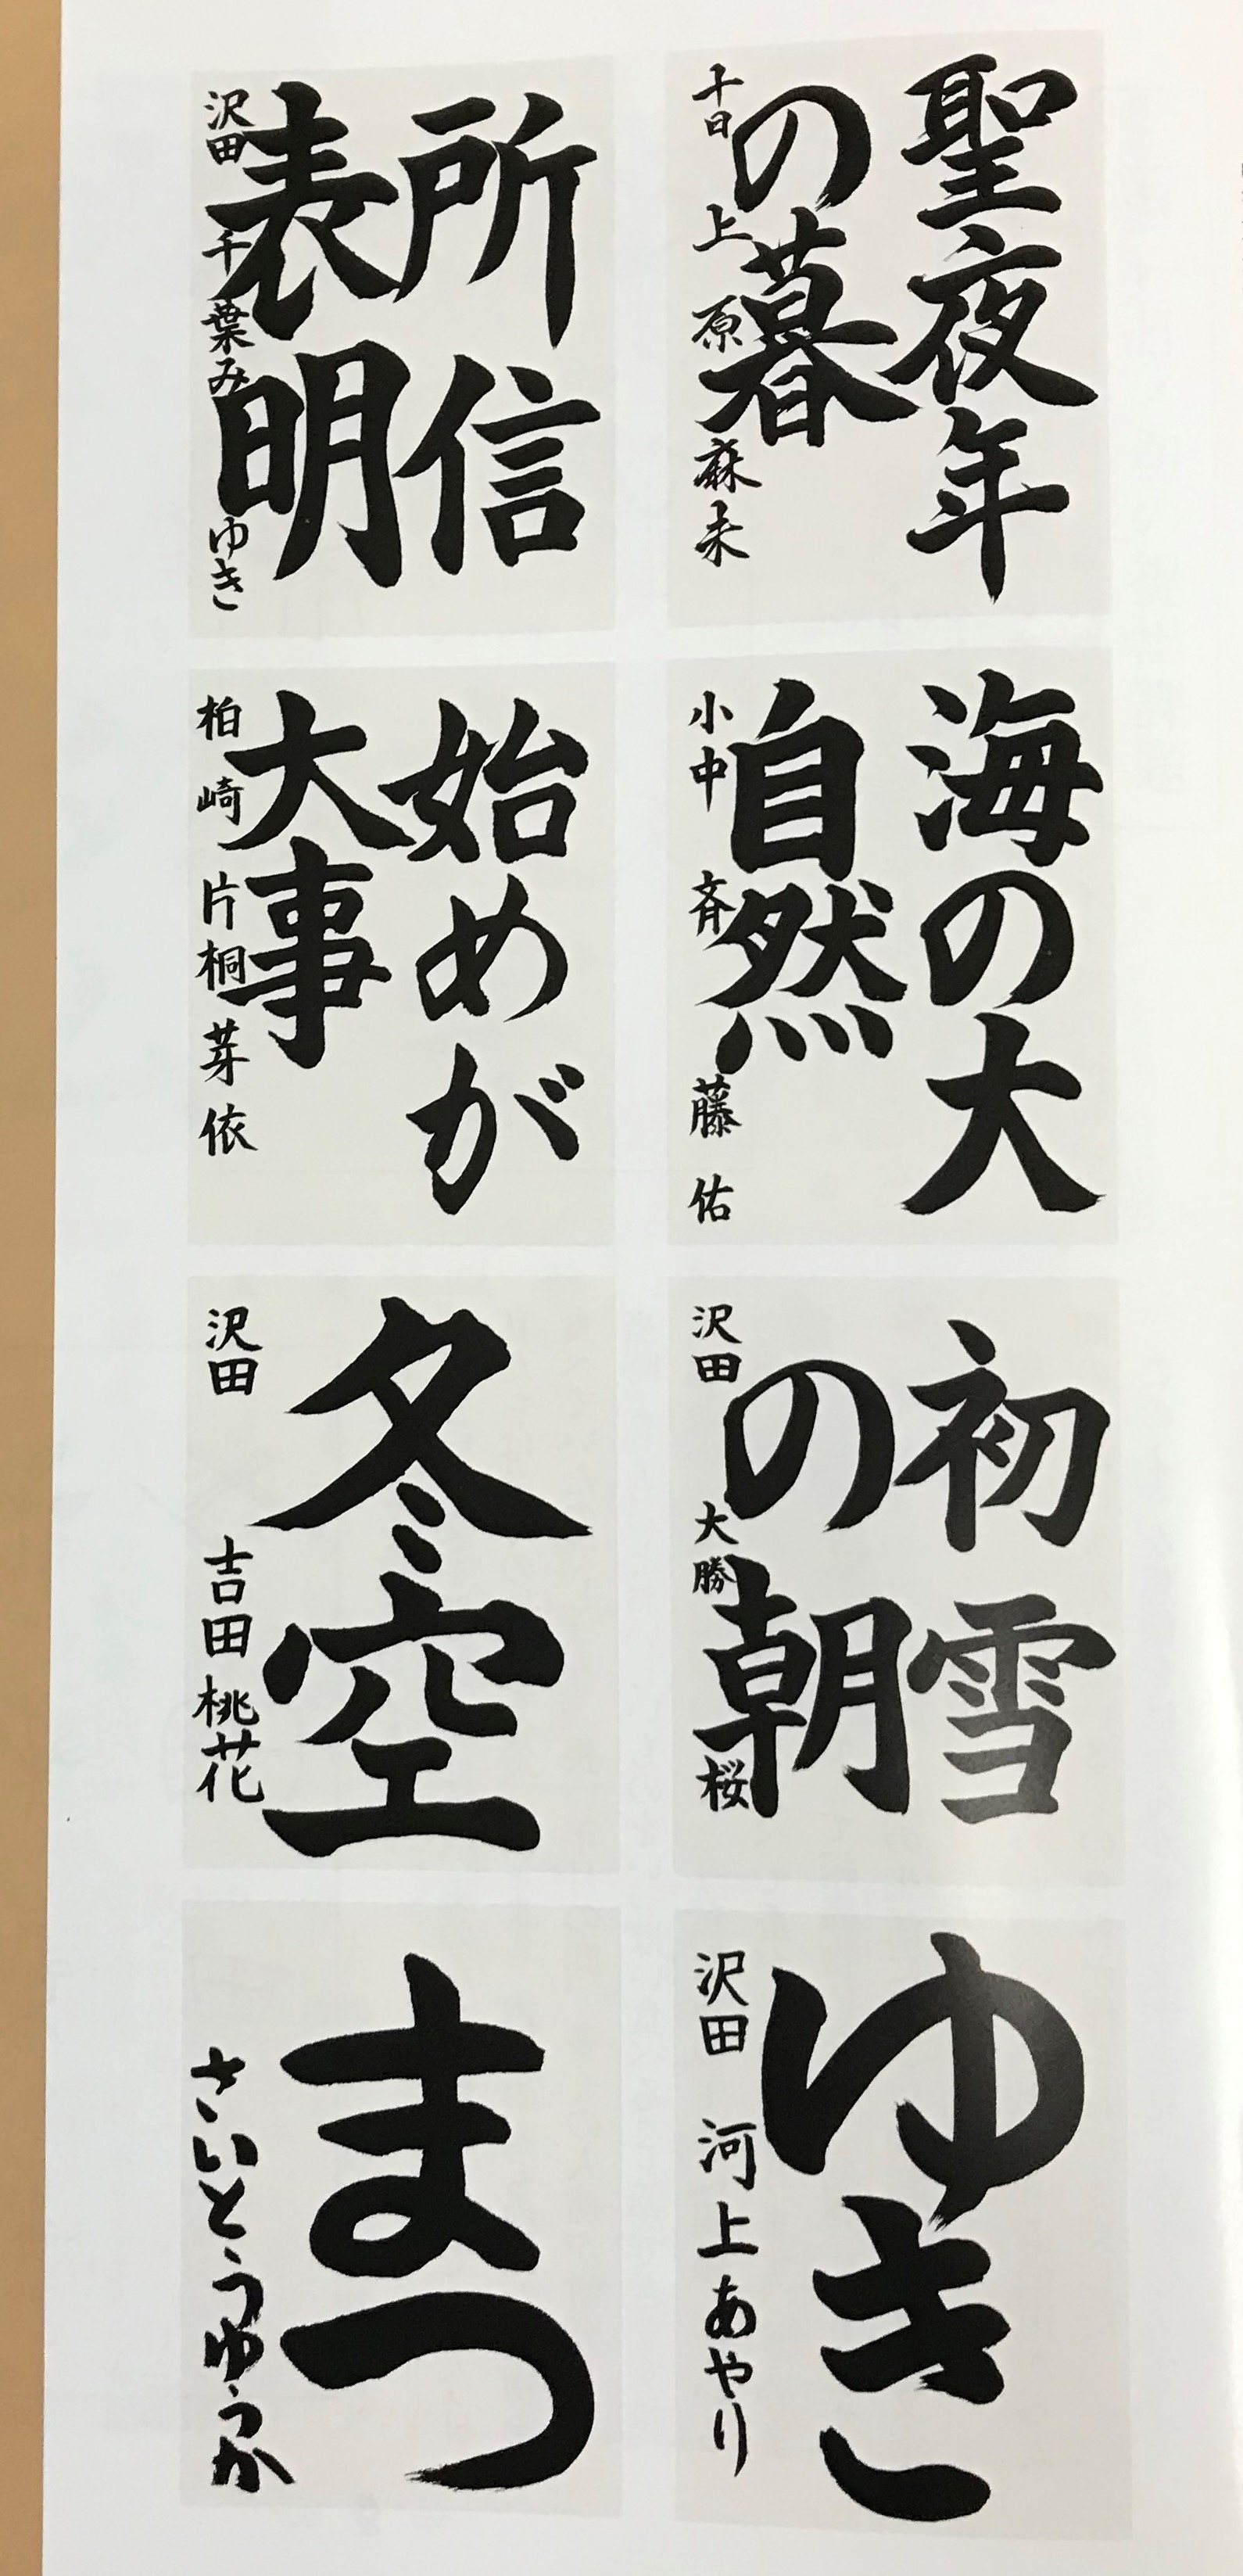 聖夜年
の暮
十日
上原麻未
所信
表明
沢田
千葉みゆき
海の大
自然
小中
斉藤佑
始めが
大事
柏崎
片桐芽依
初雪
の朝
沢田
大勝桜
冬空
沢田
吉田桃花
ゆき
沢田
河上あやり
まつ
さいとうゆうか